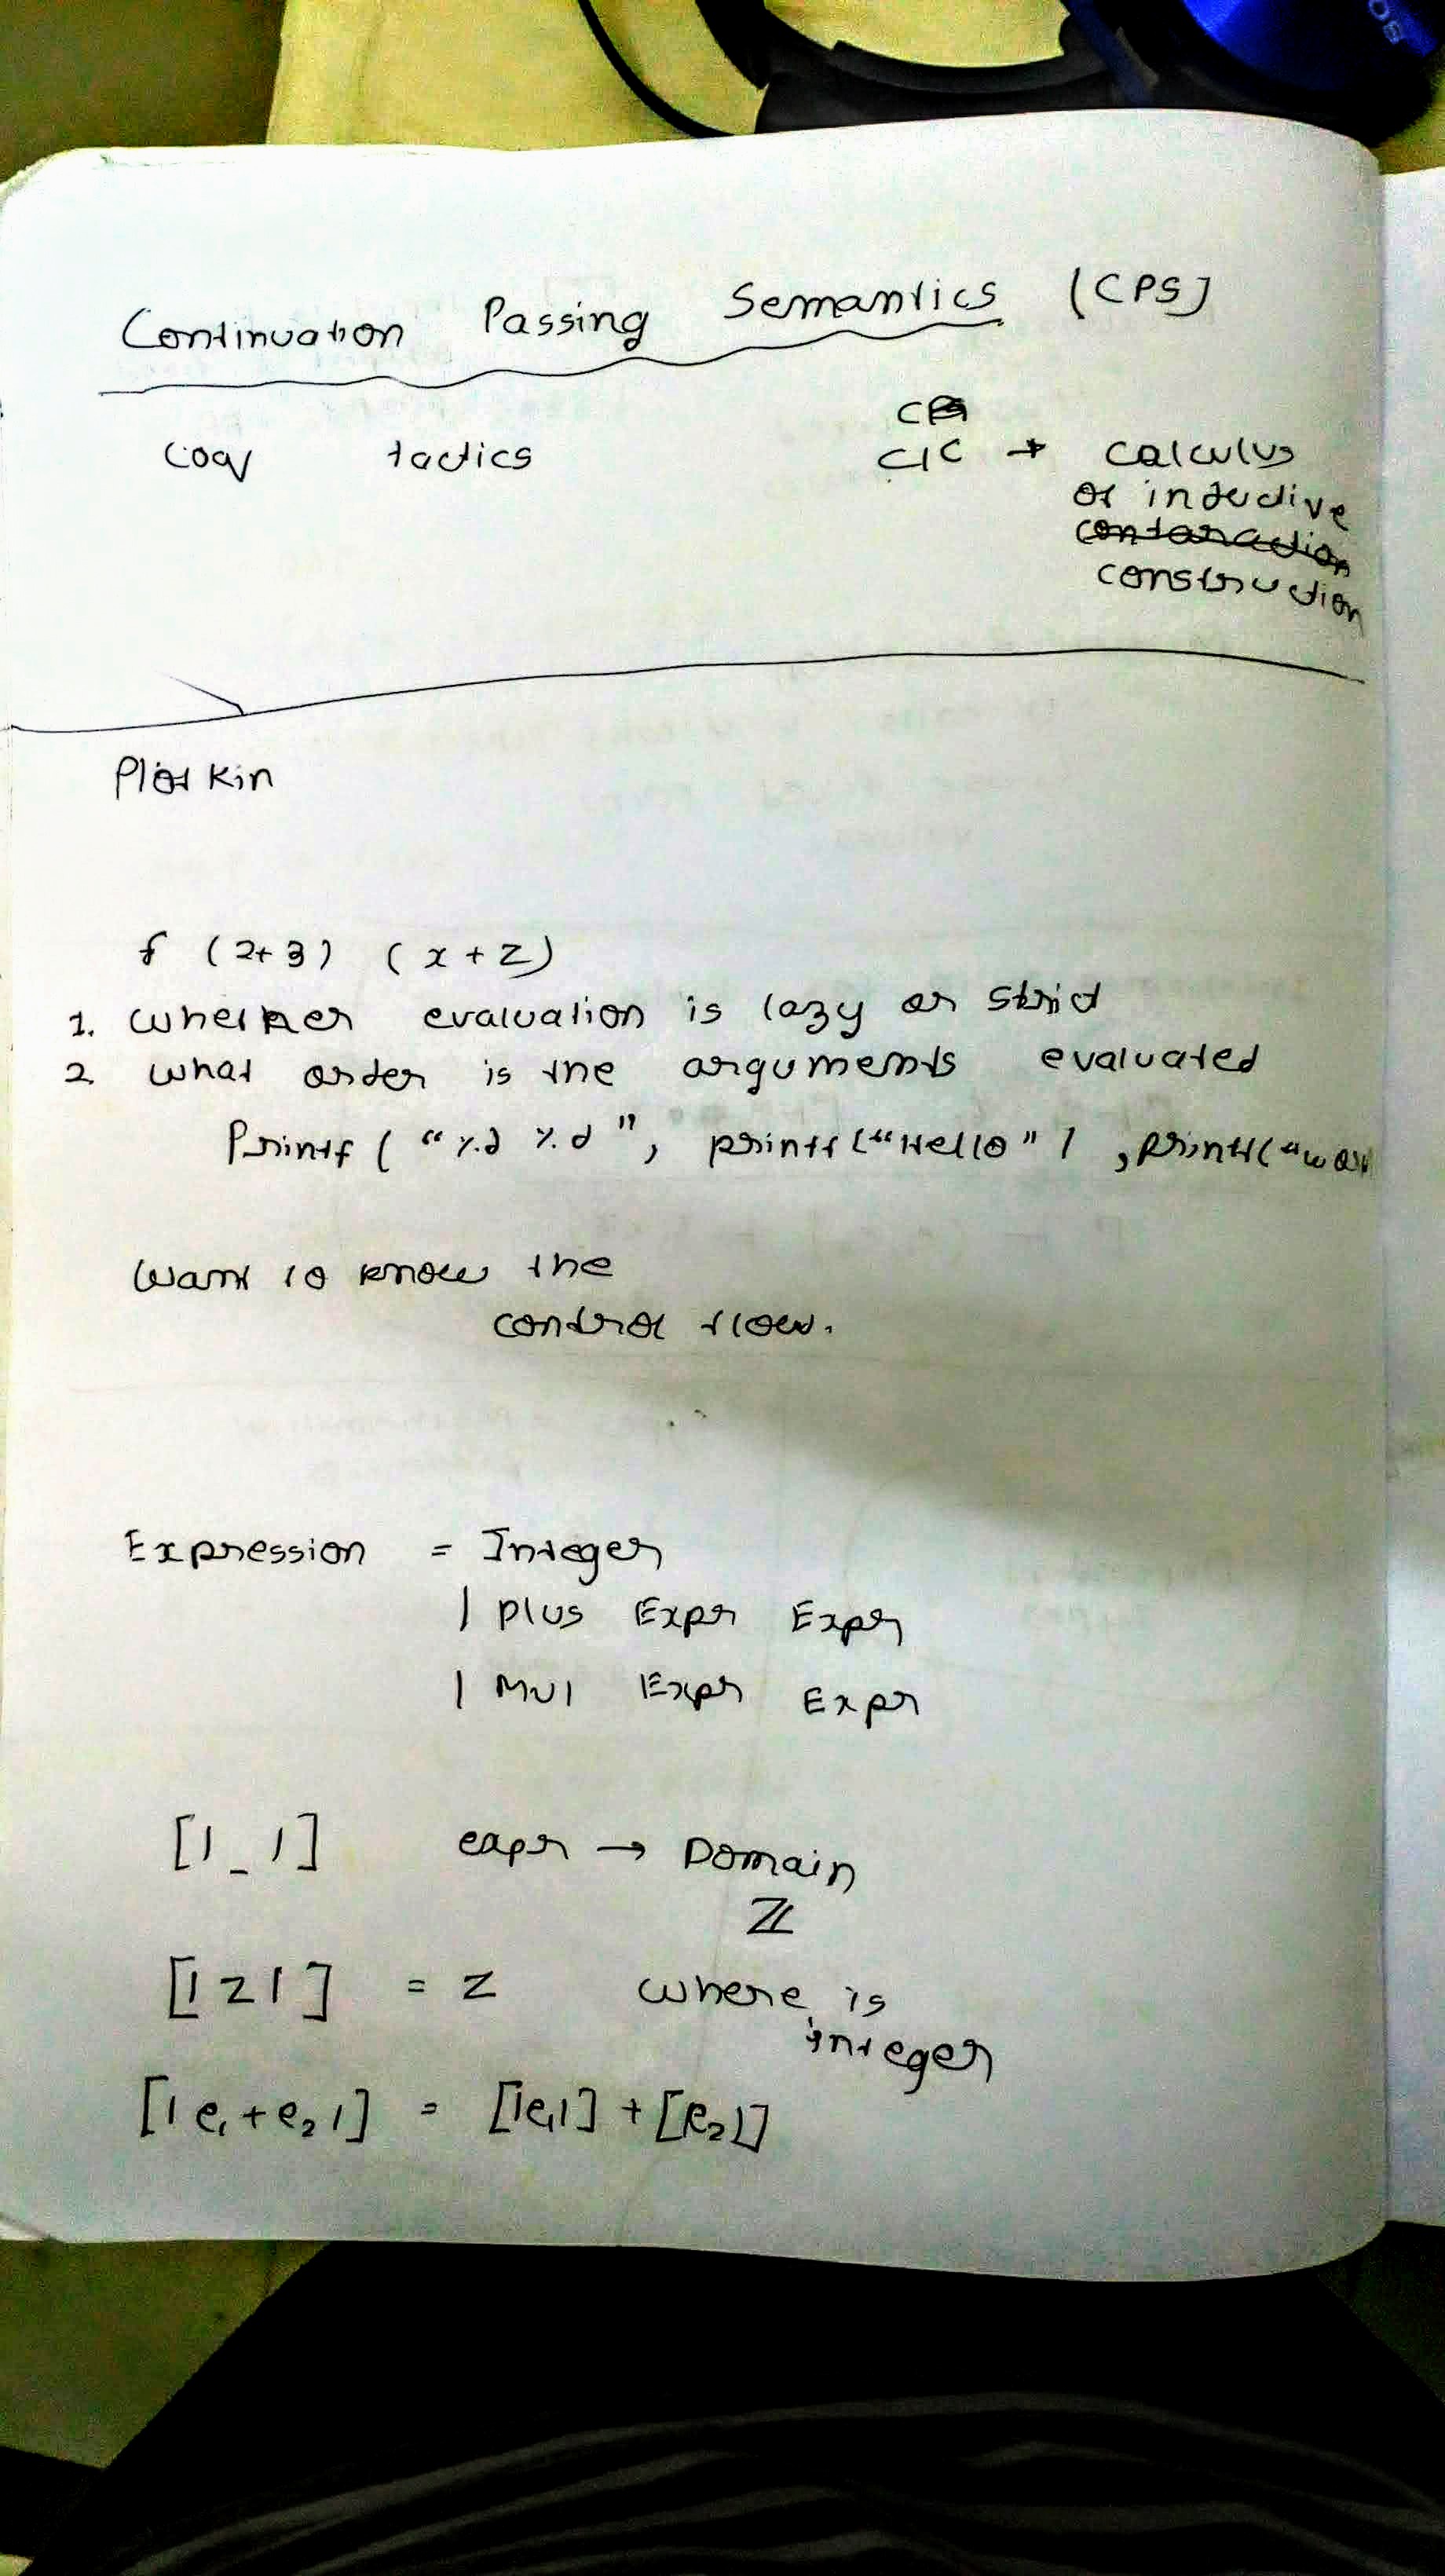 Continuation Passing Semantics (CPS)
Coq tactics
CIC → calculus
of inductive
construction
Plotkin
f (2+3) (x+z)
1. whether evaluation is lazy or strict
2 what order is the arguments evaluated
Printf ( "%d %d", printf("Hello") , printf("wor
want to know the
control flow.
Expression = Integer
| plus Expr Expr
| Mul Expr Expr
[|_|] expr → Domain
ℤ
[|z|] = z where is
integer
[|e₁+e₂|] = [|e₁|] + [e₂|]